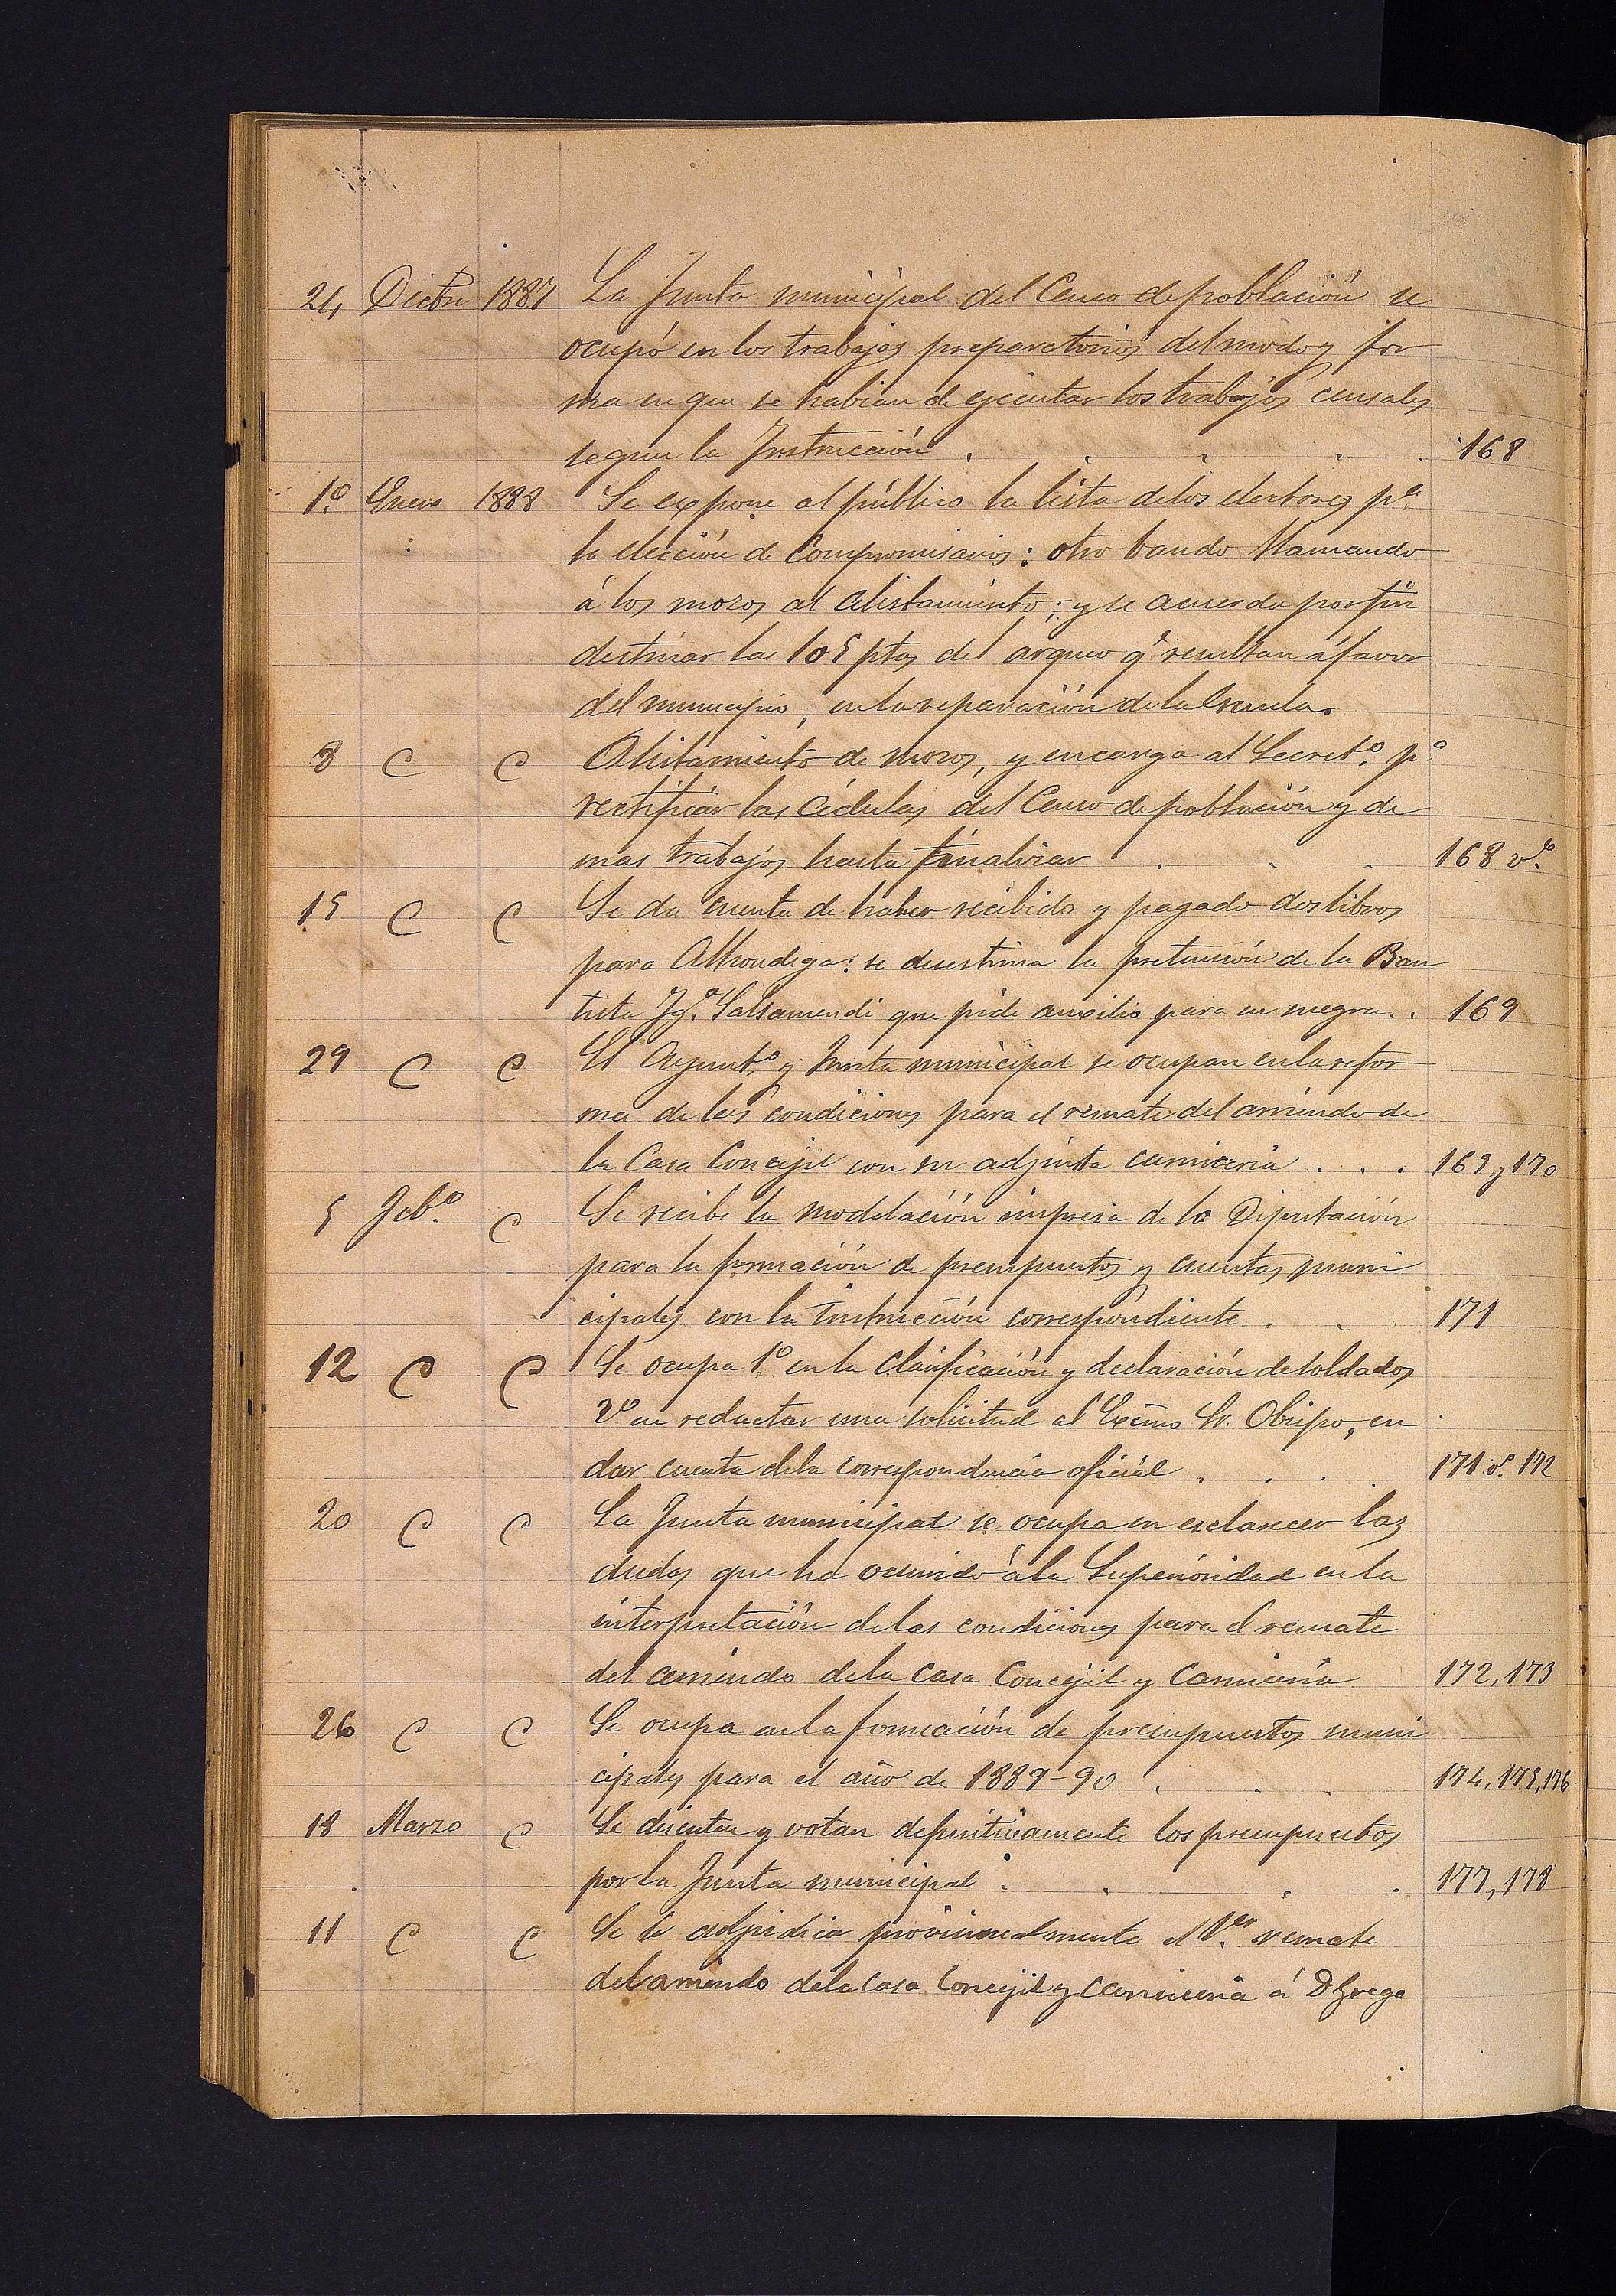 24 Dicbre 1887 La Junta municipal del Censo de población se
ocupó en los trabajos preparatorios del modo y for
ma en que se habian de ejecutar los trabajos censales
segun la Instrucción . . . . 168
1º Enero 1888 Se expone al público la lista de los electores pª
la elección de Compromisarios: otro bando llamando
á los mozos al alistamiento; y se acuerda por fin
destinar las 105 ptas del arqueo q.e resultan á favor
del municipio, en la reparación de la Escuela.
8 C C Alistamiento de mozos, y encarga al Secretº. pª
rectificar las Cédulas del Censo de población y de
mas trabajos hasta finalizar . . . 168 vº.
15 C C Se da cuenta de haber recibido y pagado dos libros
para Alhondiga: se desestima la pretensión de la Bau
tista Igª. Salsamendi que pide auxilio para su suegra. . 169
29 C C El Ayuntº. y Junta municipal se ocupan en la refor
ma de las condiciones para el remate del arriendo de
la Casa Concejil con su adjunta carniceria . . . 169 y 170
5 Febº. C Se recibe la modelación impresa de la Diputación
para la formación de presupuestos y cuentas muni
cipales con la Instrucción correspondiente . . 171
12 C C Se ocupa 1º en la Clasificación y declaración de soldados
2º en redactar una solicitud al Excmo Sr. Obispo, en
dar cuenta de la correspondencia oficial . . . 171 vº. 172
20 C C La Junta municipal se ocupa en esclarecer las
dudas que ha ocurrido á la Superioridad en la
interpretación de las condiciones para el remate
del arriendo de la Casa Concejil y Carniceria 172, 173
26 C C Se ocupa en la formación de presupuestos muni
cipales para el año de 1889-90 . . . 174, 175, 176
18 Marzo C Se discuten y votan definitivamente los presupuestos
por la Junta municipal . . . . 177, 178
11 C C Se le adjudica provisionalmente el 1.er remate
del arriendo de la Casa Concejil y Carniceria á D Grego